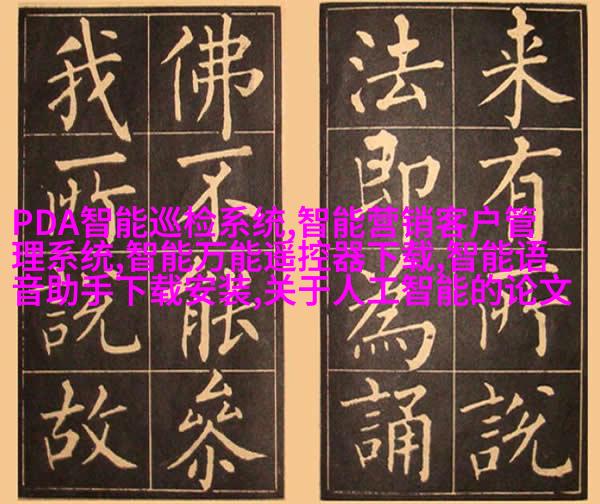 来有所說
法即為誦
佛不能參
我所說故
PDA智能巡检系统,智能营销客户管
理系统,智能万能遥控器下载,智能语
音助手下载安装,关于人工智能的论文